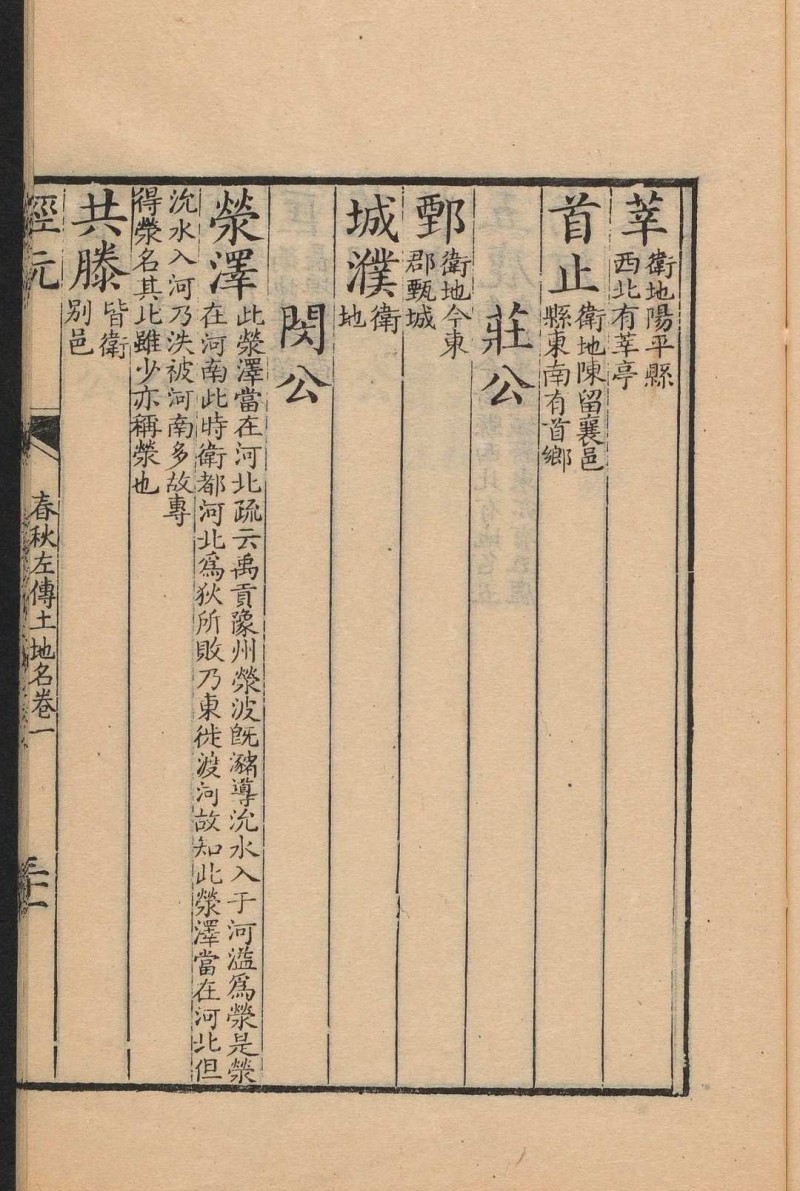 莘衛地陽平縣西北有莘亭
首止衛地陳留襄邑縣東南有首鄉
莊公
鄄衛地今東郡甄城
城濮衛地
閔公
熒澤此熒澤當在河北疏云禹貢豫州熒波旣瀦導沇水入于河溢爲熒是熒在河南此時衛都河北爲狄所敗乃東徙渡河故知此熒澤當在河北但
沇水入河乃泆被河南多故專得熒名其北雖少亦稱熒也
共滕皆衛别邑
春秋左傳土地名卷一